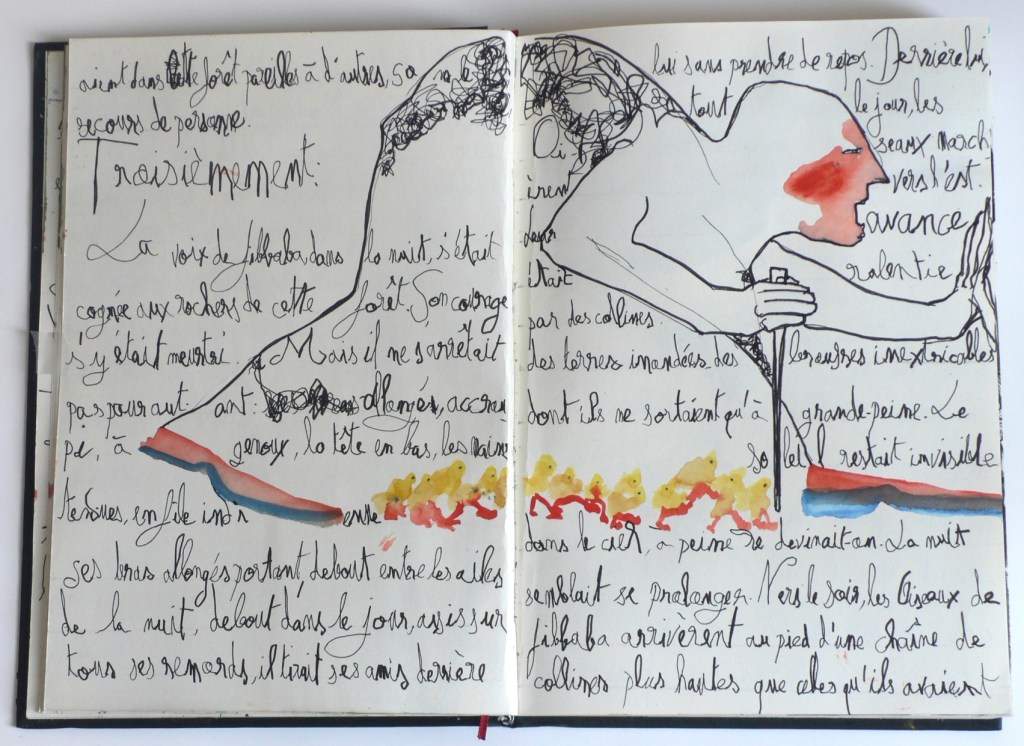 aient dans cette forêt pareilles à d'autres, sa
recours de personne.
Troisièmement:
La voix de Jibbaba, dans la nuit, s'était
cognée aux rochers de cette forêt. Son courage
s'y était meurtri. Mais il ne s'arrêtait
pas pour autant. allongé, accrou
pi, à genoux, la tête en bas, les mains
tendues, en file indienne
ses bras allongés portant, debout entre les ailes
de la nuit, debout dans le jour, assis sur
tous ses remords, il tirait ses amis derrière
lui sans prendre de repos. Derrière lui,
tout le jour, les
Oi seaux march
èrent vers l'est.
Leur avance
était ralentie
par des collines.
des terres inondées des broufres inextricables
dont ils ne sortaient qu'à grande peine. Le
soleil restait invisible
dans le ciel, à peine le devinait-on. La nuit
semblait se prolonger. Vers le soir, les Oiseaux de
Jibbaba arrivèrent au pied d'une chaîne de
collines plus hautes que celles qu'ils avaient